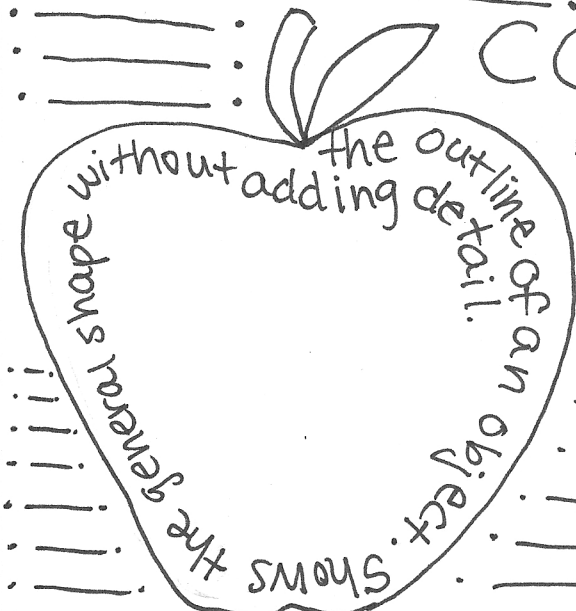 the outline of an object. Shows the general shape without adding detail.